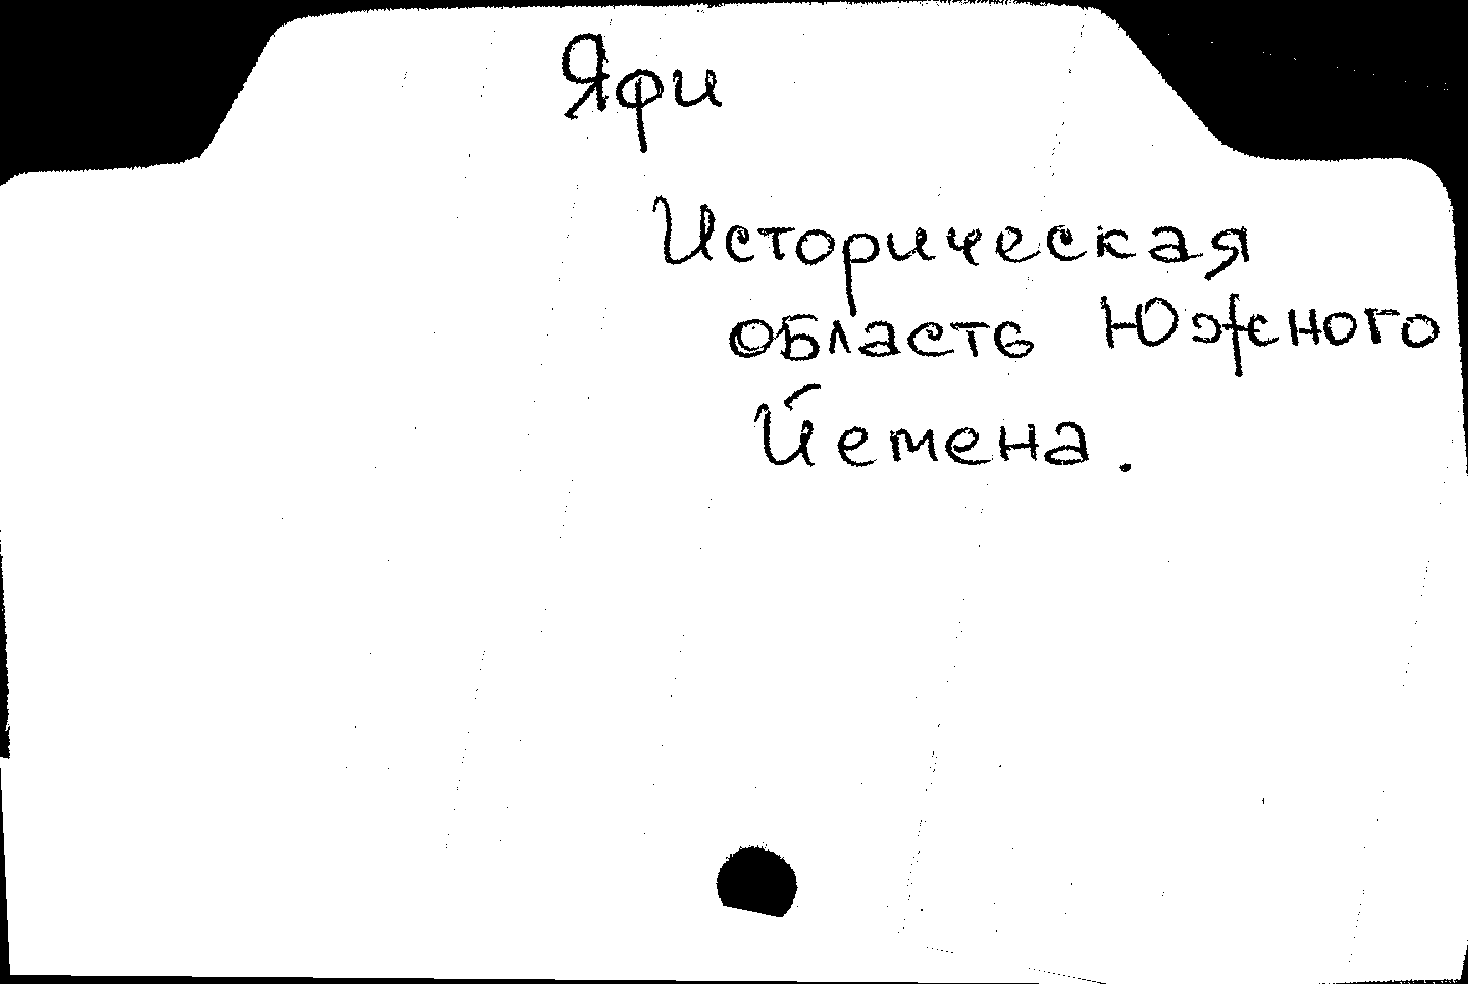 Яфи
Историческая
область Южного
Йемена.